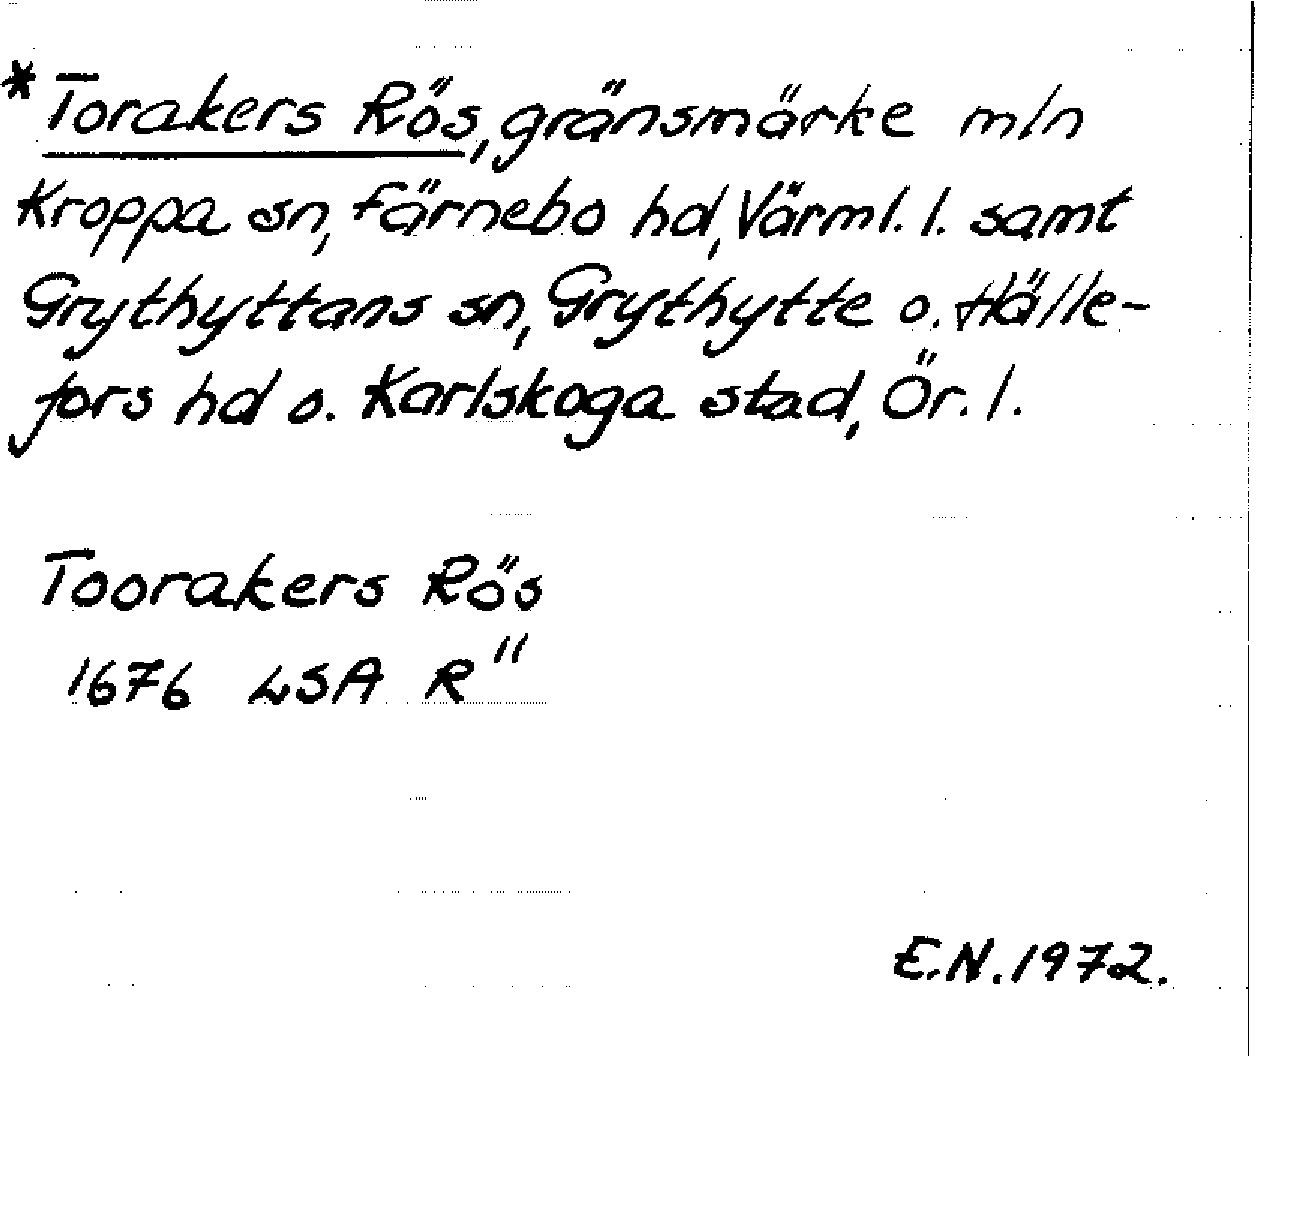 *Torakers Rös, gränsmärke mln
Kroppa sn, Färnebo hd, Värml. l. samt
Grythyttans sn, Grythytte o. Hälle-
fors hd o. Karlskoga stad, Ör. l.
Toorakers Rös
1676 LSA R"
E.N. 1972.